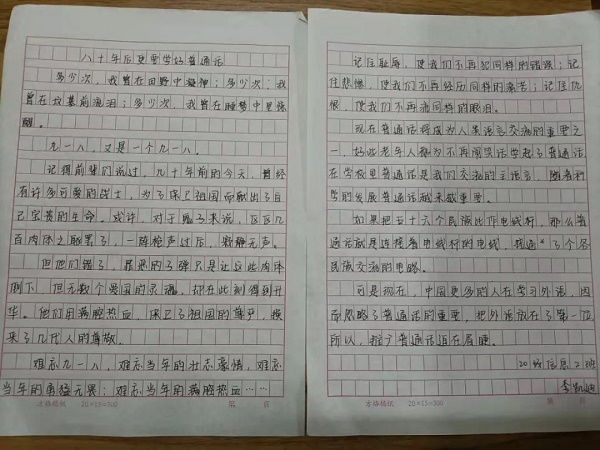 八十年后更要学好普通话
多少次，我曾在田野中凝神；多少次，我
曾在坟墓前流泪；多少次，我曾在睡梦中里惊
醒。
九一八，又是一个九一八。
记得前辈们说过，几十年前的今天，曾经
有许多可爱的战士，为了保卫祖国而献出了自
己宝贵的生命。或许，对于鬼子来说，区区几
百肉体之躯罢了，一阵枪声过后，寂静无声。
但他们错了，罪恶的子弹只是让这些肉体
倒下，但无数个爱国的灵魂，却在此刻得到升
华。他们用满腔热血，保卫了祖国的尊严，换
来了几代人的尊敬。
难忘九一八，难忘当年的壮志豪情，难忘
当年的勇猛无畏；难忘当年的满腔热血……
方格稿纸 20×15=300 第 页
记住耻辱，使我们不再犯同样的错误；记
住悲惨，使我们不再经历同样的痛苦；记住仇
恨，使我们不再流同样的眼泪。
现在普通话将成为人类语言交流的重要之
一，好些老年人都为不再闹笑话学起了普通话
在学校里普通话是我们交流的主语言，随着科
学的发展普通话越来越重要。
如果把五十六个民族比作电线杆，那么普
通话就是连接着电线杆的电线，接通了各
民族交流的电路。
可是现在，中国更多的人在学习外语，因
而忽略了普通话的重要，把外语放在了第一位
所以，推广普通话迫在眉睫。
20级信息2班
李凯迪
方格稿纸 20×15=300 第 页